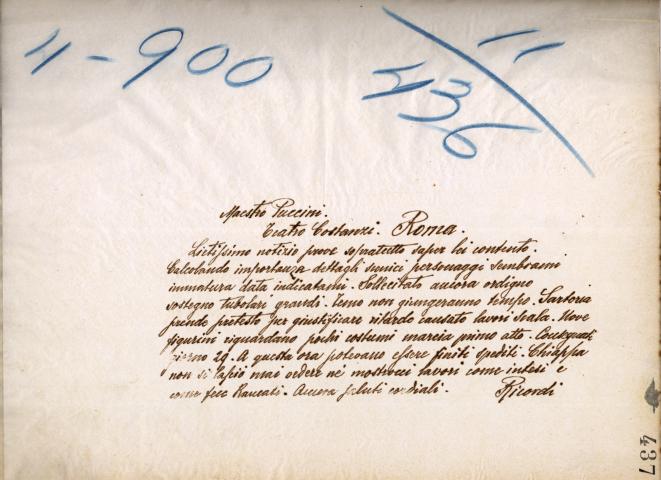 4-900
11
436
Maestro Puccini.
Teatro Costanzi. Roma.
Lietissimo notizie prove sopratutto saper lei contento.
Calcolando importanza dettagli scenici personaggi sembrami
immatura data indicatami. Sollecitato ancora ordigno
sostegno tubolari grandi. Temo non giungeranno tempo. Sartoria
prende pretesto per giustificare ritardo causato lavori Scala. Nove
figurini riguardano pochi costumi marcia primo atto. Consegnati
giorno 29. A questa ora potevano essere finiti spediti. Chiappa
non si lasciò mai vedere nè mostrocci lavori come intesi e
come fece Rancati. Ancora saluti cordiali. Ricordi
437